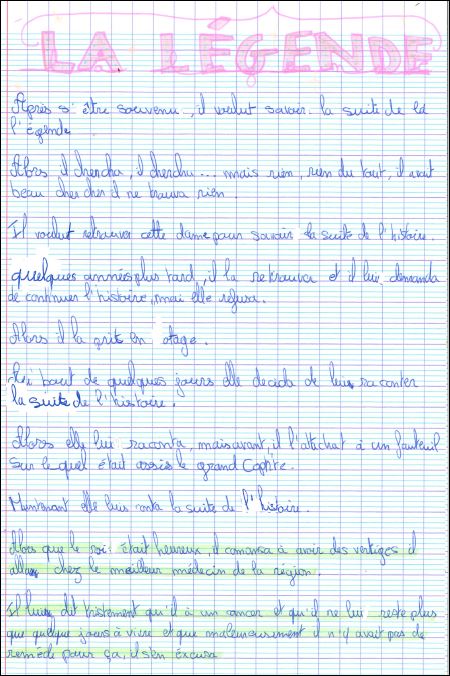 LA LÉGENDE
Après s'être souvenu, il voulut savoir la suite de la
l'égende.
Alors il chercha, il cherchu... mais rien, rien du tout, il avait
beau chercher il ne trouva rien.
Il voulut retrouver cette dame pour savoir la suite de l'histoire.
quelques annnés plus tard, il la retrouva et il lui demanda
de continuer l'histoire, mai elle refusa.
Alors il la prit en otage.
bout de quelques jours elle decida de leur raconter
la suite de l'histoire.
Alors elle lui raconta, mais avant, il l'attachat à un fauteuil
sur lequel était assis le grand
Maintenant elle luis conta la suite de l'histoire.
Alors que le roi était heureux, il comansa à avoir des vertiges il
alla chez le meilleur médecin de la région.
Il luis dit tristement qu'il à un cancer et qu'il ne lui reste plus
que quelque jours à vivre et que maleureusement il n'y avait pas de
remède pour ça, il s'en éxcusa